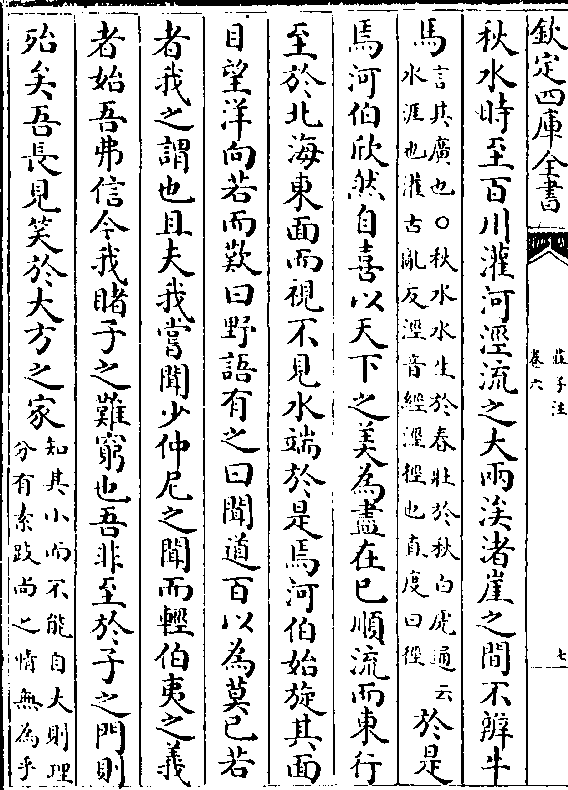 欽定四庫全書
莊子注
卷六
七
秋水時至百川灌河涇流之大兩涘渚崖之間不辨牛
馬言其廣也○秋水水生於春壯於秋白虎通云
水涯也灌古亂反涇音經涇徑也直度曰徑於是
焉河伯欣然自喜以天下之美為盡在已順流而東行
至於北海東面而視不見水端於是焉河伯始旋其面
目望洋向若而歎曰野語有之曰聞道百以為莫已若
者我之謂也且夫我嘗聞少仲尼之聞而輕伯夷之義
者始吾弗信今我睹子之難窮也吾非至於子之門則
殆矣吾長見笑於大方之家知其小而不能自大則理
分有素跂尚之情無為乎